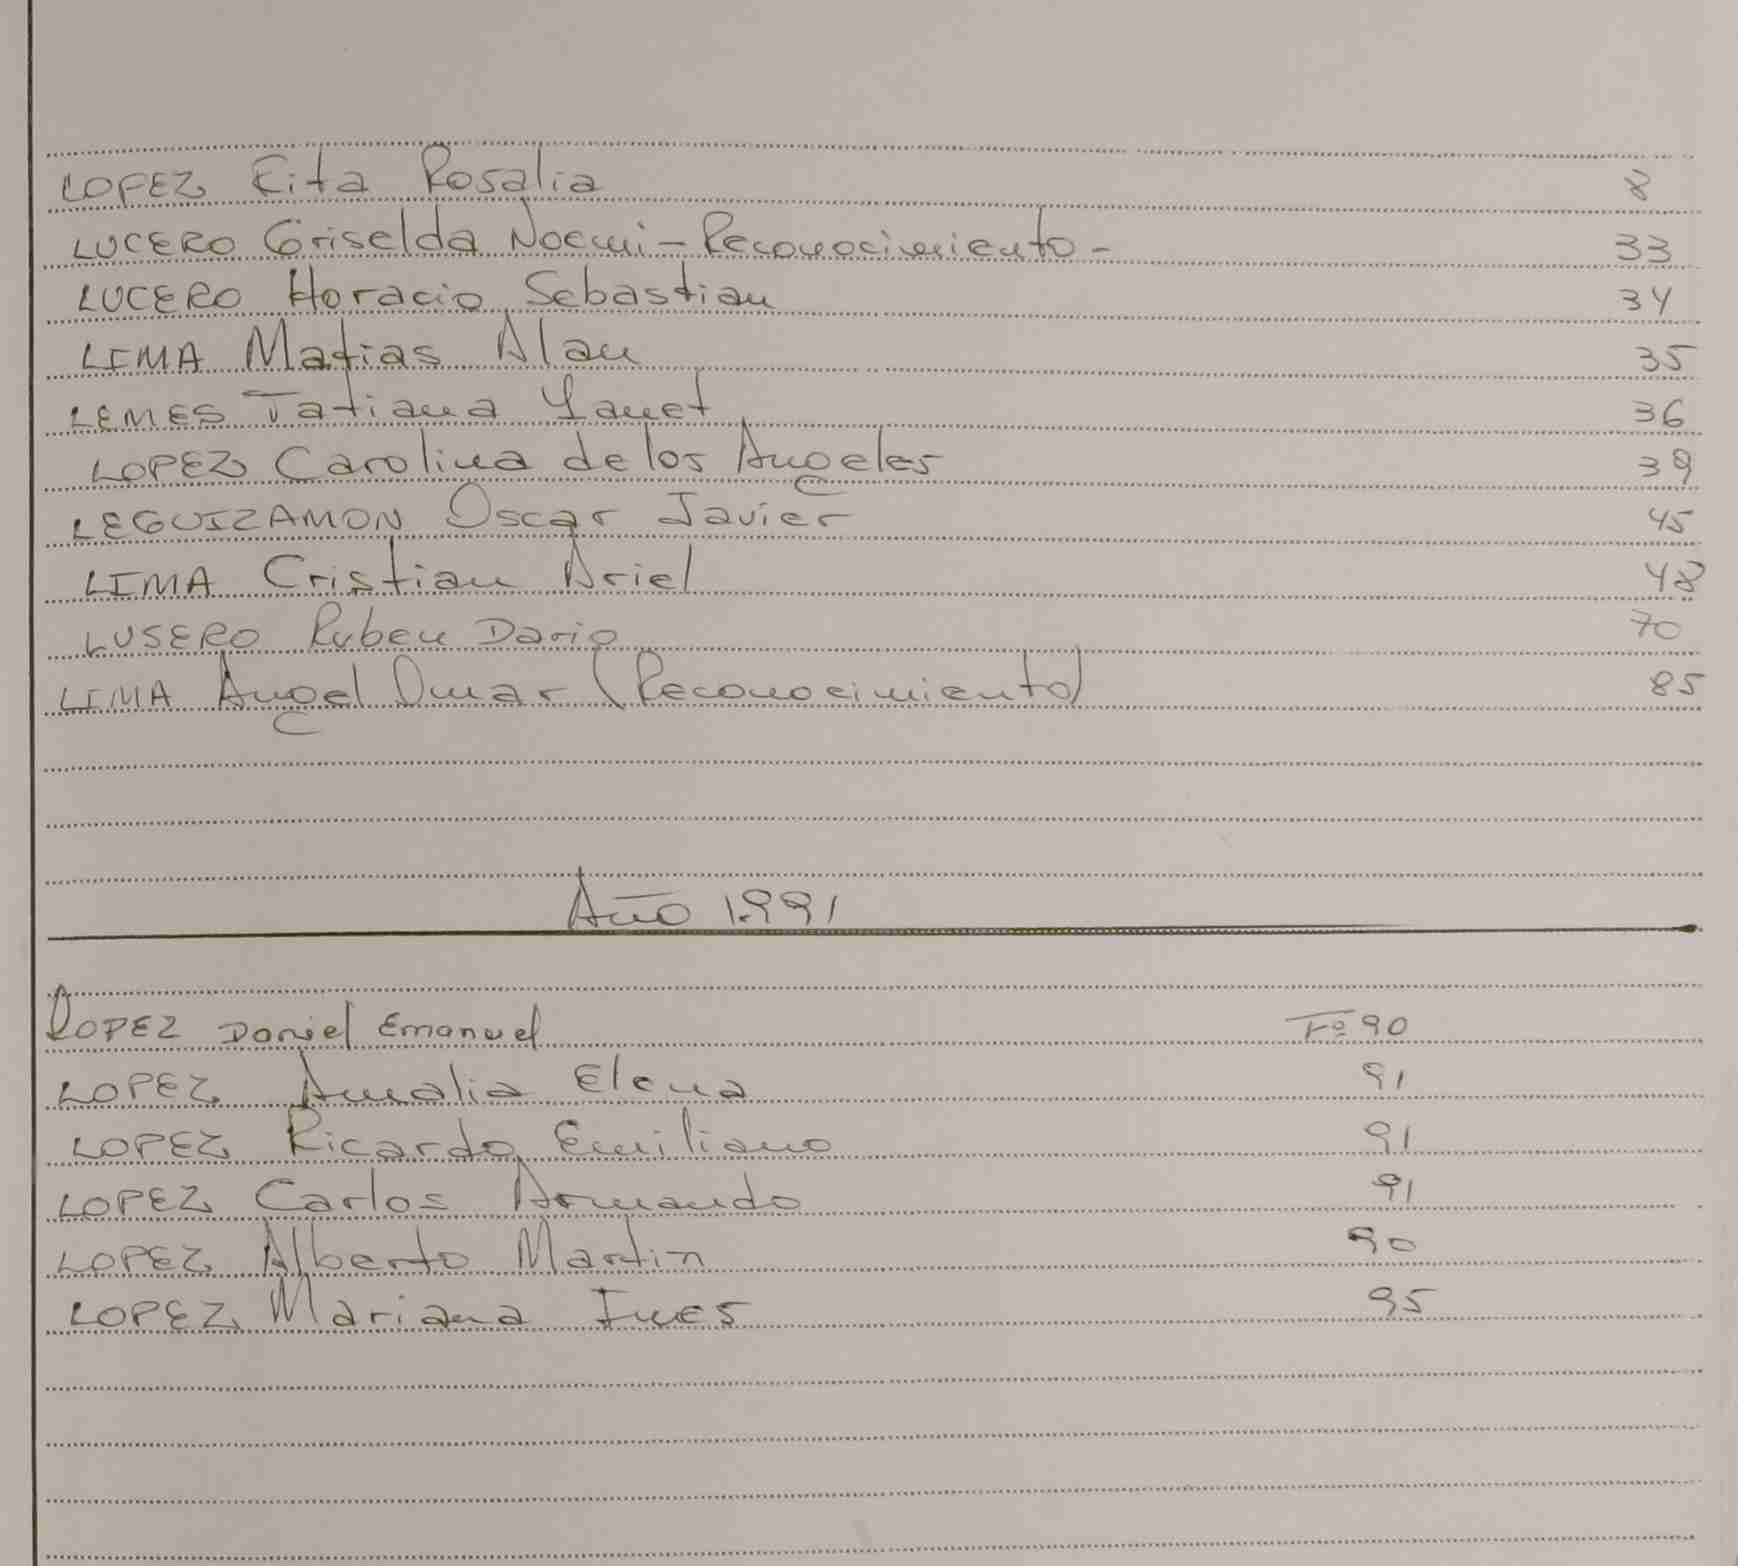 LOPEZ Rita Rosalia 8
LUCERO Griselda Noemi - Reconocimiento - 33
LUCERO Horacio Sebastian 34
LIMA Matias Alan 35
LEMES Tatiana Yanet 36
LOPEZ Carolina de los Angeles 39
LEGUIZAMON Oscar Javier 45
LIMA Cristian Ariel 48
LUSERO Ruben Dario 70
LIMA Angel Omar (Reconocimiento) 85
Año 1.991
LOPEZ Daniel Emanuel Fº 90
LOPEZ Amalia Elena 91
LOPEZ Ricardo Emiliano 91
LOPEZ Carlos Armando 91
LOPEZ Alberto Martin 90
LOPEZ Mariana Ines 95